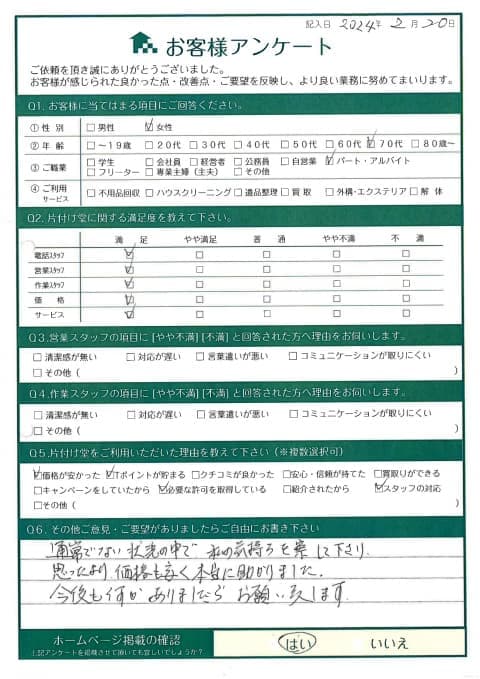 記入日 2024年 2月 20日
お客様アンケート
ご依頼を頂き誠にありがとうございました。
お客様が感じられた良かった点・改善点・ご要望を反映し、より良い業務に努めてまいります。
Q1. お客様に当てはまる項目にご回答ください。
①性別 □男性 ☑女性
②年齢 □～19歳 □20代 □30代 □40代 □50代 □60代 ☑70代 □80歳～
③ご職業 □学生 □会社員 □経営者 □公務員 □自営業 ☑パート・アルバイト
□フリーター □専業主婦（主夫） □その他
④ご利用サービス □不用品回収 □ハウスクリーニング □遺品整理 □買取 □外構・エクステリア □解体
Q2. 片付け堂に関する満足度を教えて下さい。
満足 やや満足 普通 やや不満 不満
電話スタッフ ☑ □ □ □ □
営業スタッフ ☑ □ □ □ □
作業スタッフ ☑ □ □ □ □
価格 ☑ □ □ □ □
サービス ☑ □ □ □ □
Q3. 営業スタッフの項目に [やや不満] [不満] と回答された方へ理由をお伺いします。
□清潔感が無い □対応が遅い □言葉遣いが悪い □コミュニケーションが取りにくい
□その他（ ）
Q4. 作業スタッフの項目に [やや不満] [不満] と回答された方へ理由をお伺いします。
□清潔感が無い □対応が遅い □言葉遣いが悪い □コミュニケーションが取りにくい
□その他（ ）
Q5. 片付け堂をご利用いただいた理由を教えて下さい（※複数選択可）
☑価格が安かった ☑Tポイントが貯まる □クチコミが良かった □安心・信頼が持てた □買取りができる
□キャンペーンをしていたから ☑必要な許可を取得している □紹介されたから ☑スタッフの対応
□その他（ ）
Q6. その他ご意見・ご要望がありましたらご自由にお書き下さい
通常でない状況の中で 私の気持ちを察して下さり、
思ったより価格も良く本当に助かりました。
今後も何かありましたらお願い致します。
ホームページ掲載の確認 はい いいえ
上記アンケートを掲載させて頂いても宜しいでしょうか？